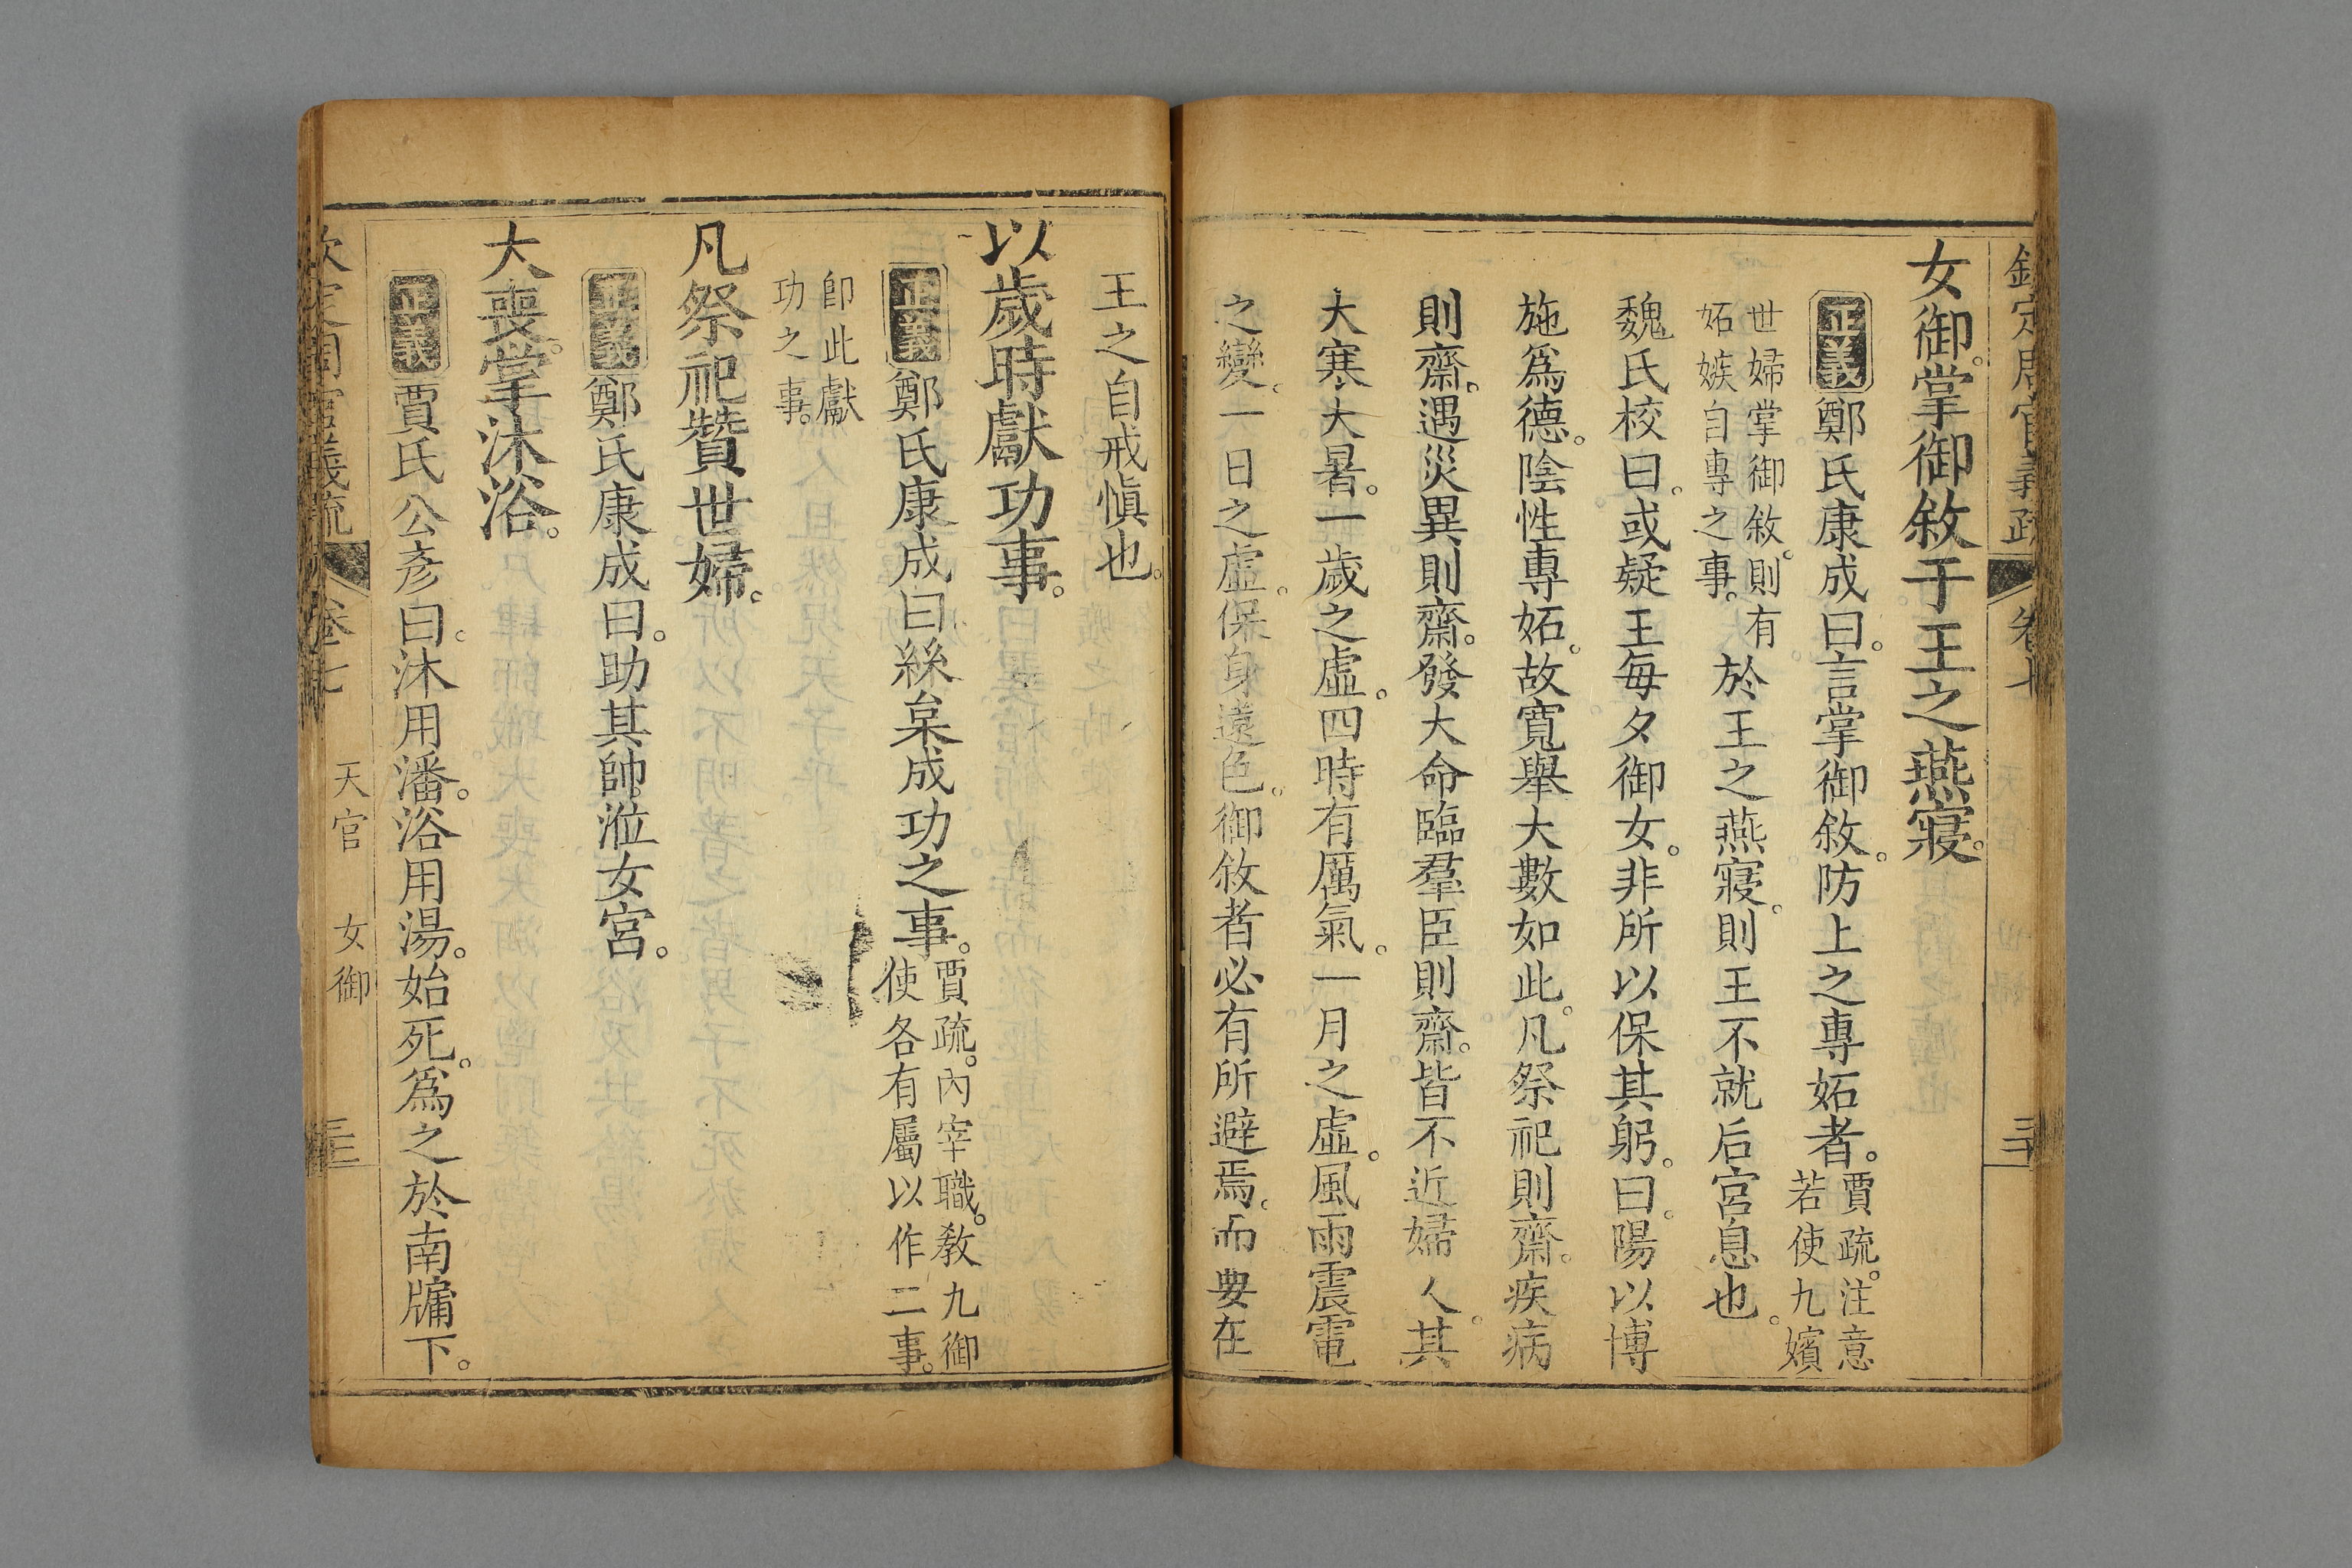 欽定周官義疏 卷七
女御。掌御敘于王之燕寢。
正義 鄭氏康成曰。言掌御敘。防上之專妬者。賈疏。注意若使九嬪
世婦掌御敘。則有妬嫉自專之事。於王之燕寢。則王不就后宮息也。
魏氏校曰。或疑王每夕御女。非所以保其躬。曰。陽以博
施爲德。陰性專妬。故寬舉大數如此。凡祭祀則齋。疾病
則齋。遇災異則齋。發大命臨羣臣則齋。皆不近婦人。其
大寒大暑。一歲之虛。四時有厲氣。一月之虛。風雨震電
之變。一日之虛。保身遠色。御敘者必有所避焉。而要在
王之自戒愼也。
以歲時獻功事。
正義 鄭氏康成曰絲枲成功之事。賈疏。內宰職。敎九御使各有屬以作二事。
卽此獻功之事。
凡祭祀贊世婦。
正義 鄭氏康成曰。助其帥涖女宮。
大喪。掌沐浴。
正義 賈氏公彥曰。沐用潘。浴用湯。始死。爲之於南牖下。
欽定周官義疏 卷七 天官 女御